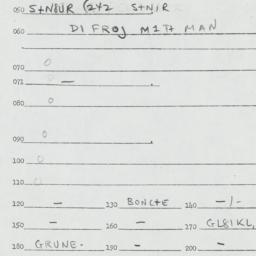 050 S+N8UR (2×2 S+N/R
060 DI FROJ MITH MAN
070 0
071 — .
080 0
090 0 .
100 0
110 0
120 — 130 BONC+E 140 —/-
150 — 160 — 170 GL8IKL,
180 GRUNE. 190 — 200 —